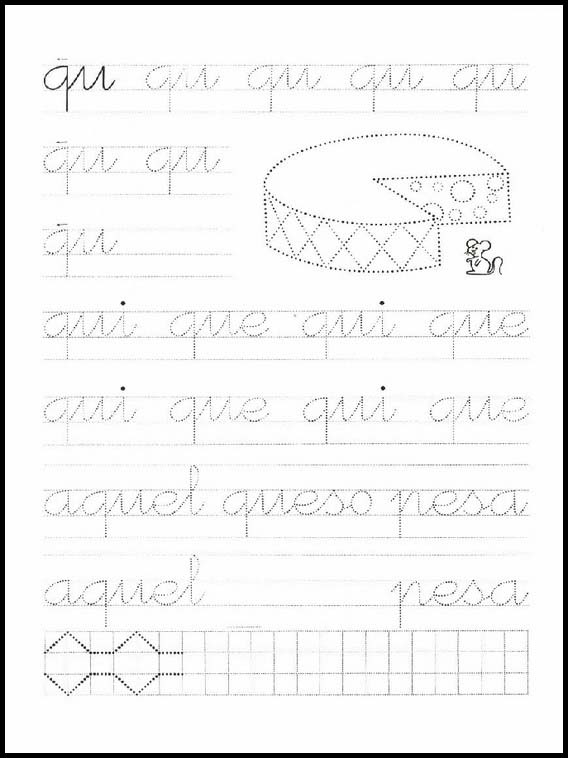 qu qu qu qu qu
qu qu
qu
qui que qui que
qui que qui que
aquel queso pesa
aquel pesa